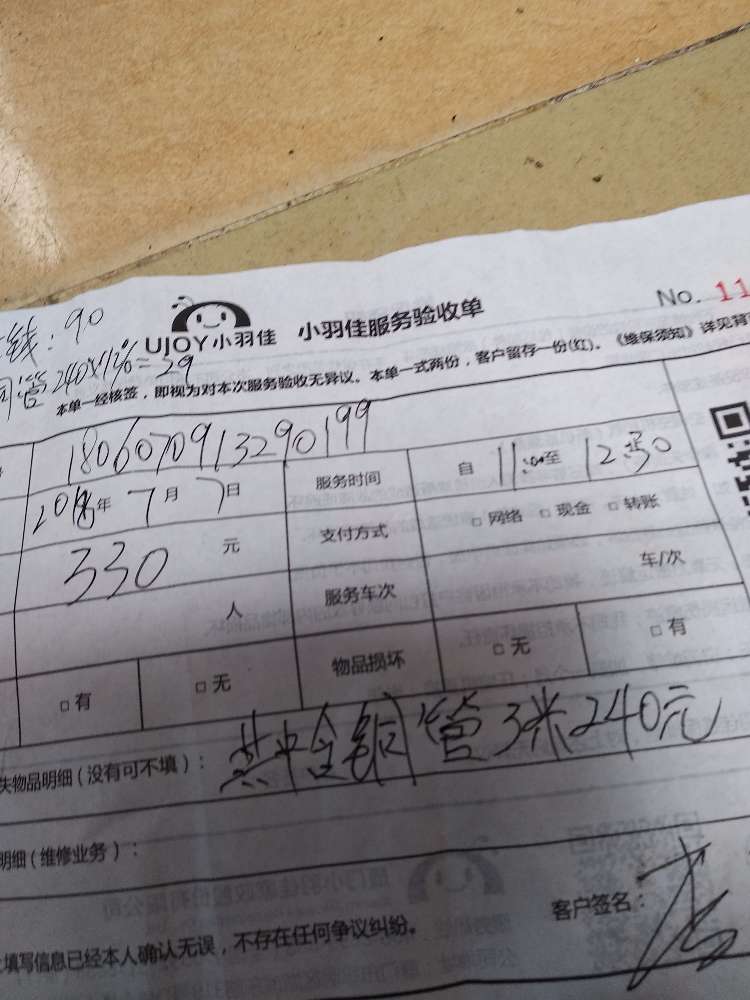 No. 11
线：90
UJOY小羽佳 小羽佳服务验收单
管240×12%=29
本单一经核签，即视为对本次服务验收无异议。本单一式两份，客户留存一份(红)。《维保须知》详见背
1806070913290199
服务时间 自 11:00至 12:30
2018年 7月 7日
支付方式 □网络 □现金 □转账
330 元
服务车次 车/次
人
□有 □无 物品损坏 □无 □有
失物品明细（没有可不填）： 铜管3米240元
明细（维修业务）：
客户签名：
填写信息已经本人确认无误，不存在任何争议纠纷。